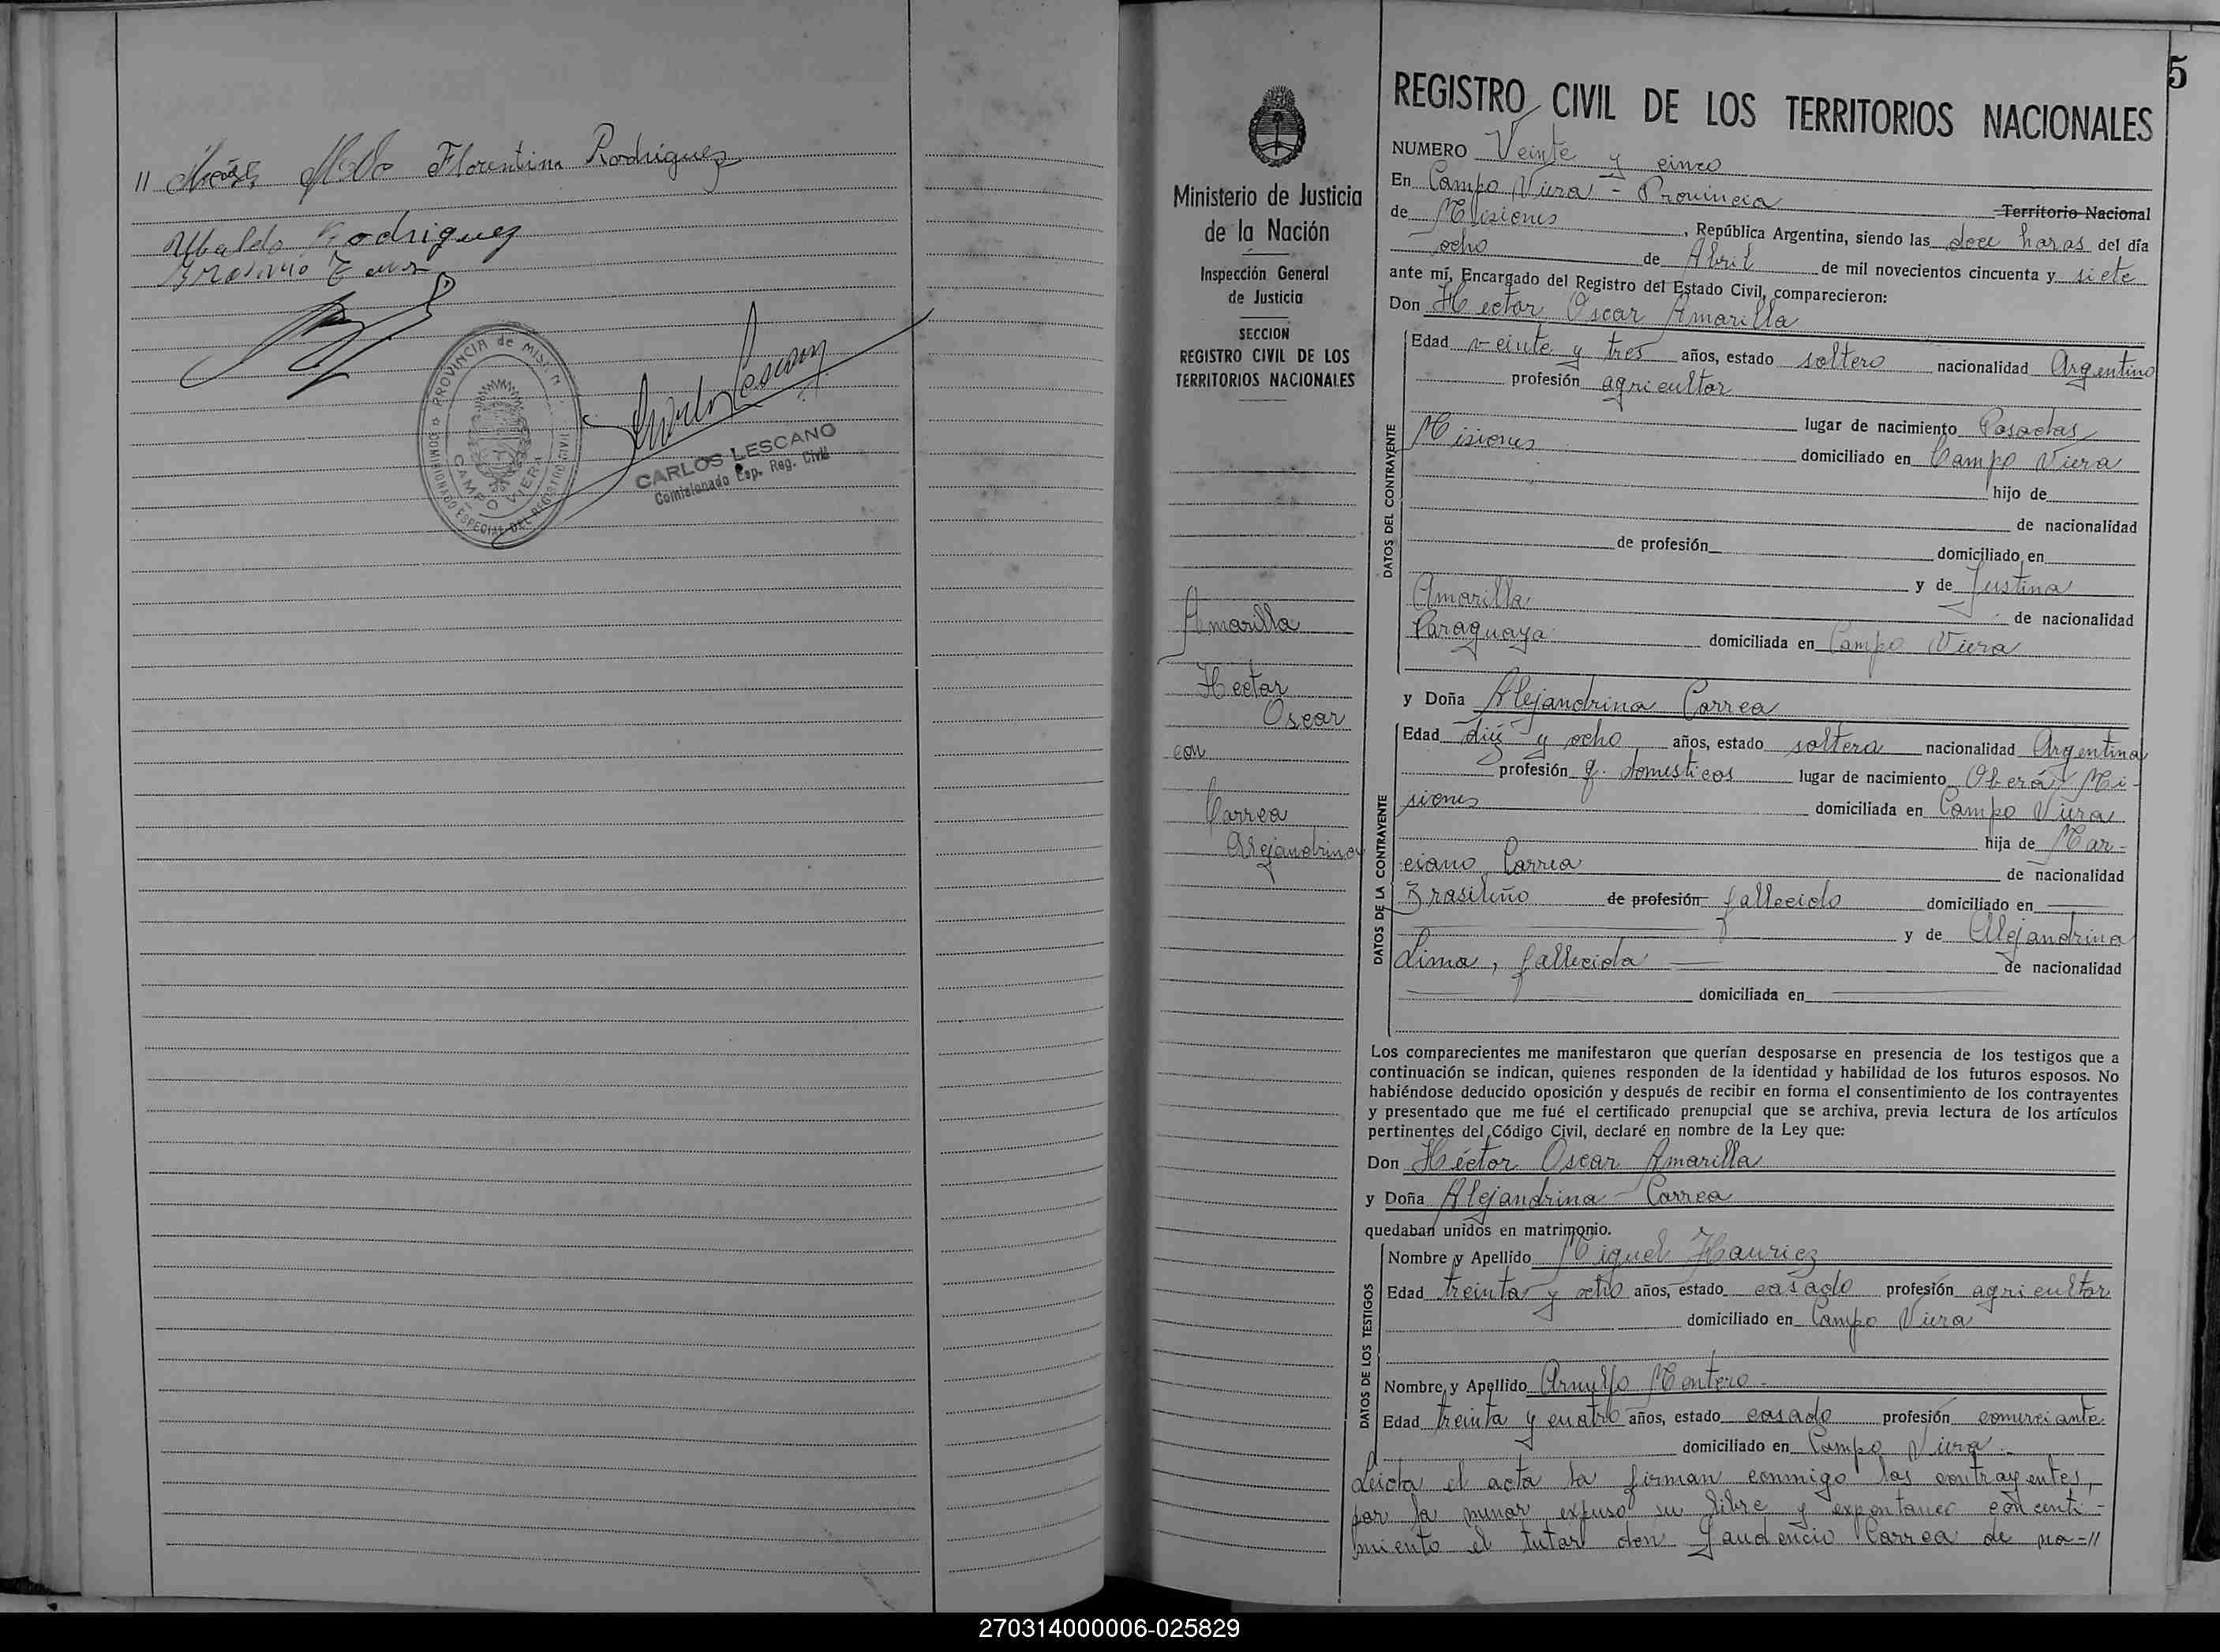 Florentina Rodriguez
Ubaldo Rodriguez
PROVINCIA de MISIONES
COMISIONADO ESPECIAL DEL REGISTRO CIVIL
CAMPO VIERA
CARLOS LESCANO
Comisionado Esp. Reg. Civil
5
Ministerio de Justicia
de la Nación
Inspección General
de Justicia
SECCION
REGISTRO CIVIL DE LOS
TERRITORIOS NACIONALES
Amarilla
Hector
Oscar
con
Correa
Alejandrina
REGISTRO CIVIL DE LOS TERRITORIOS NACIONALES
NUMERO Veinte y cinco
En Campo Viera - Provincia Territorio Nacional
de Misiones, República Argentina, siendo las doce horas del día
ocho de Abril de mil novecientos cincuenta y siete
ante mí, Encargado del Registro del Estado Civil, comparecieron:
Don Hector Oscar Amarilla
DATOS DEL CONTRAYENTE
Edad veinte y tres años, estado soltero nacionalidad Argentino
profesión agricultor
lugar de nacimiento Posadas
Misiones domiciliado en Campo Viera
hijo de
de nacionalidad
de profesión domiciliado en
y de Justina
Amarilla de nacionalidad
Paraguaya domiciliada en Campo Viera
y Doña Alejandrina Correa
DATOS DE LA CONTRAYENTE
Edad diez y ocho años, estado soltera nacionalidad Argentina
profesión q. domesticos lugar de nacimiento Oberá, Mi-
siones domiciliada en Campo Viera
hija de Mar-
ciano Correa de nacionalidad
Brasileño de profesión fallecido domiciliado en
y de Alejandrina
Lima, fallecida de nacionalidad
domiciliada en
Los comparecientes me manifestaron que querían desposarse en presencia de los testigos que a
continuación se indican, quienes responden de la identidad y habilidad de los futuros esposos. No
habiéndose deducido oposición y después de recibir en forma el consentimiento de los contrayentes
y presentado que me fué el certificado prenupcial que se archiva, previa lectura de los artículos
pertinentes del Código Civil, declaré en nombre de la Ley que:
Don Héctor Oscar Amarilla
y Doña Alejandrina Correa
quedaban unidos en matrimonio.
DATOS DE LOS TESTIGOS
Nombre y Apellido Miguel Hauriez
Edad treinta y ocho años, estado casado profesión agricultor
domiciliado en Campo Viera
Nombre y Apellido Arnulfo Montero
Edad treinta y cuatro años, estado casado profesión comerciante
domiciliado en Campo Viera
Leida el acta la firman conmigo los contrayentes,
por la menor expuso su libre y expontaneo concenti-
miento el tutor don Gaudencio Correa de na-//
270314000006-025829